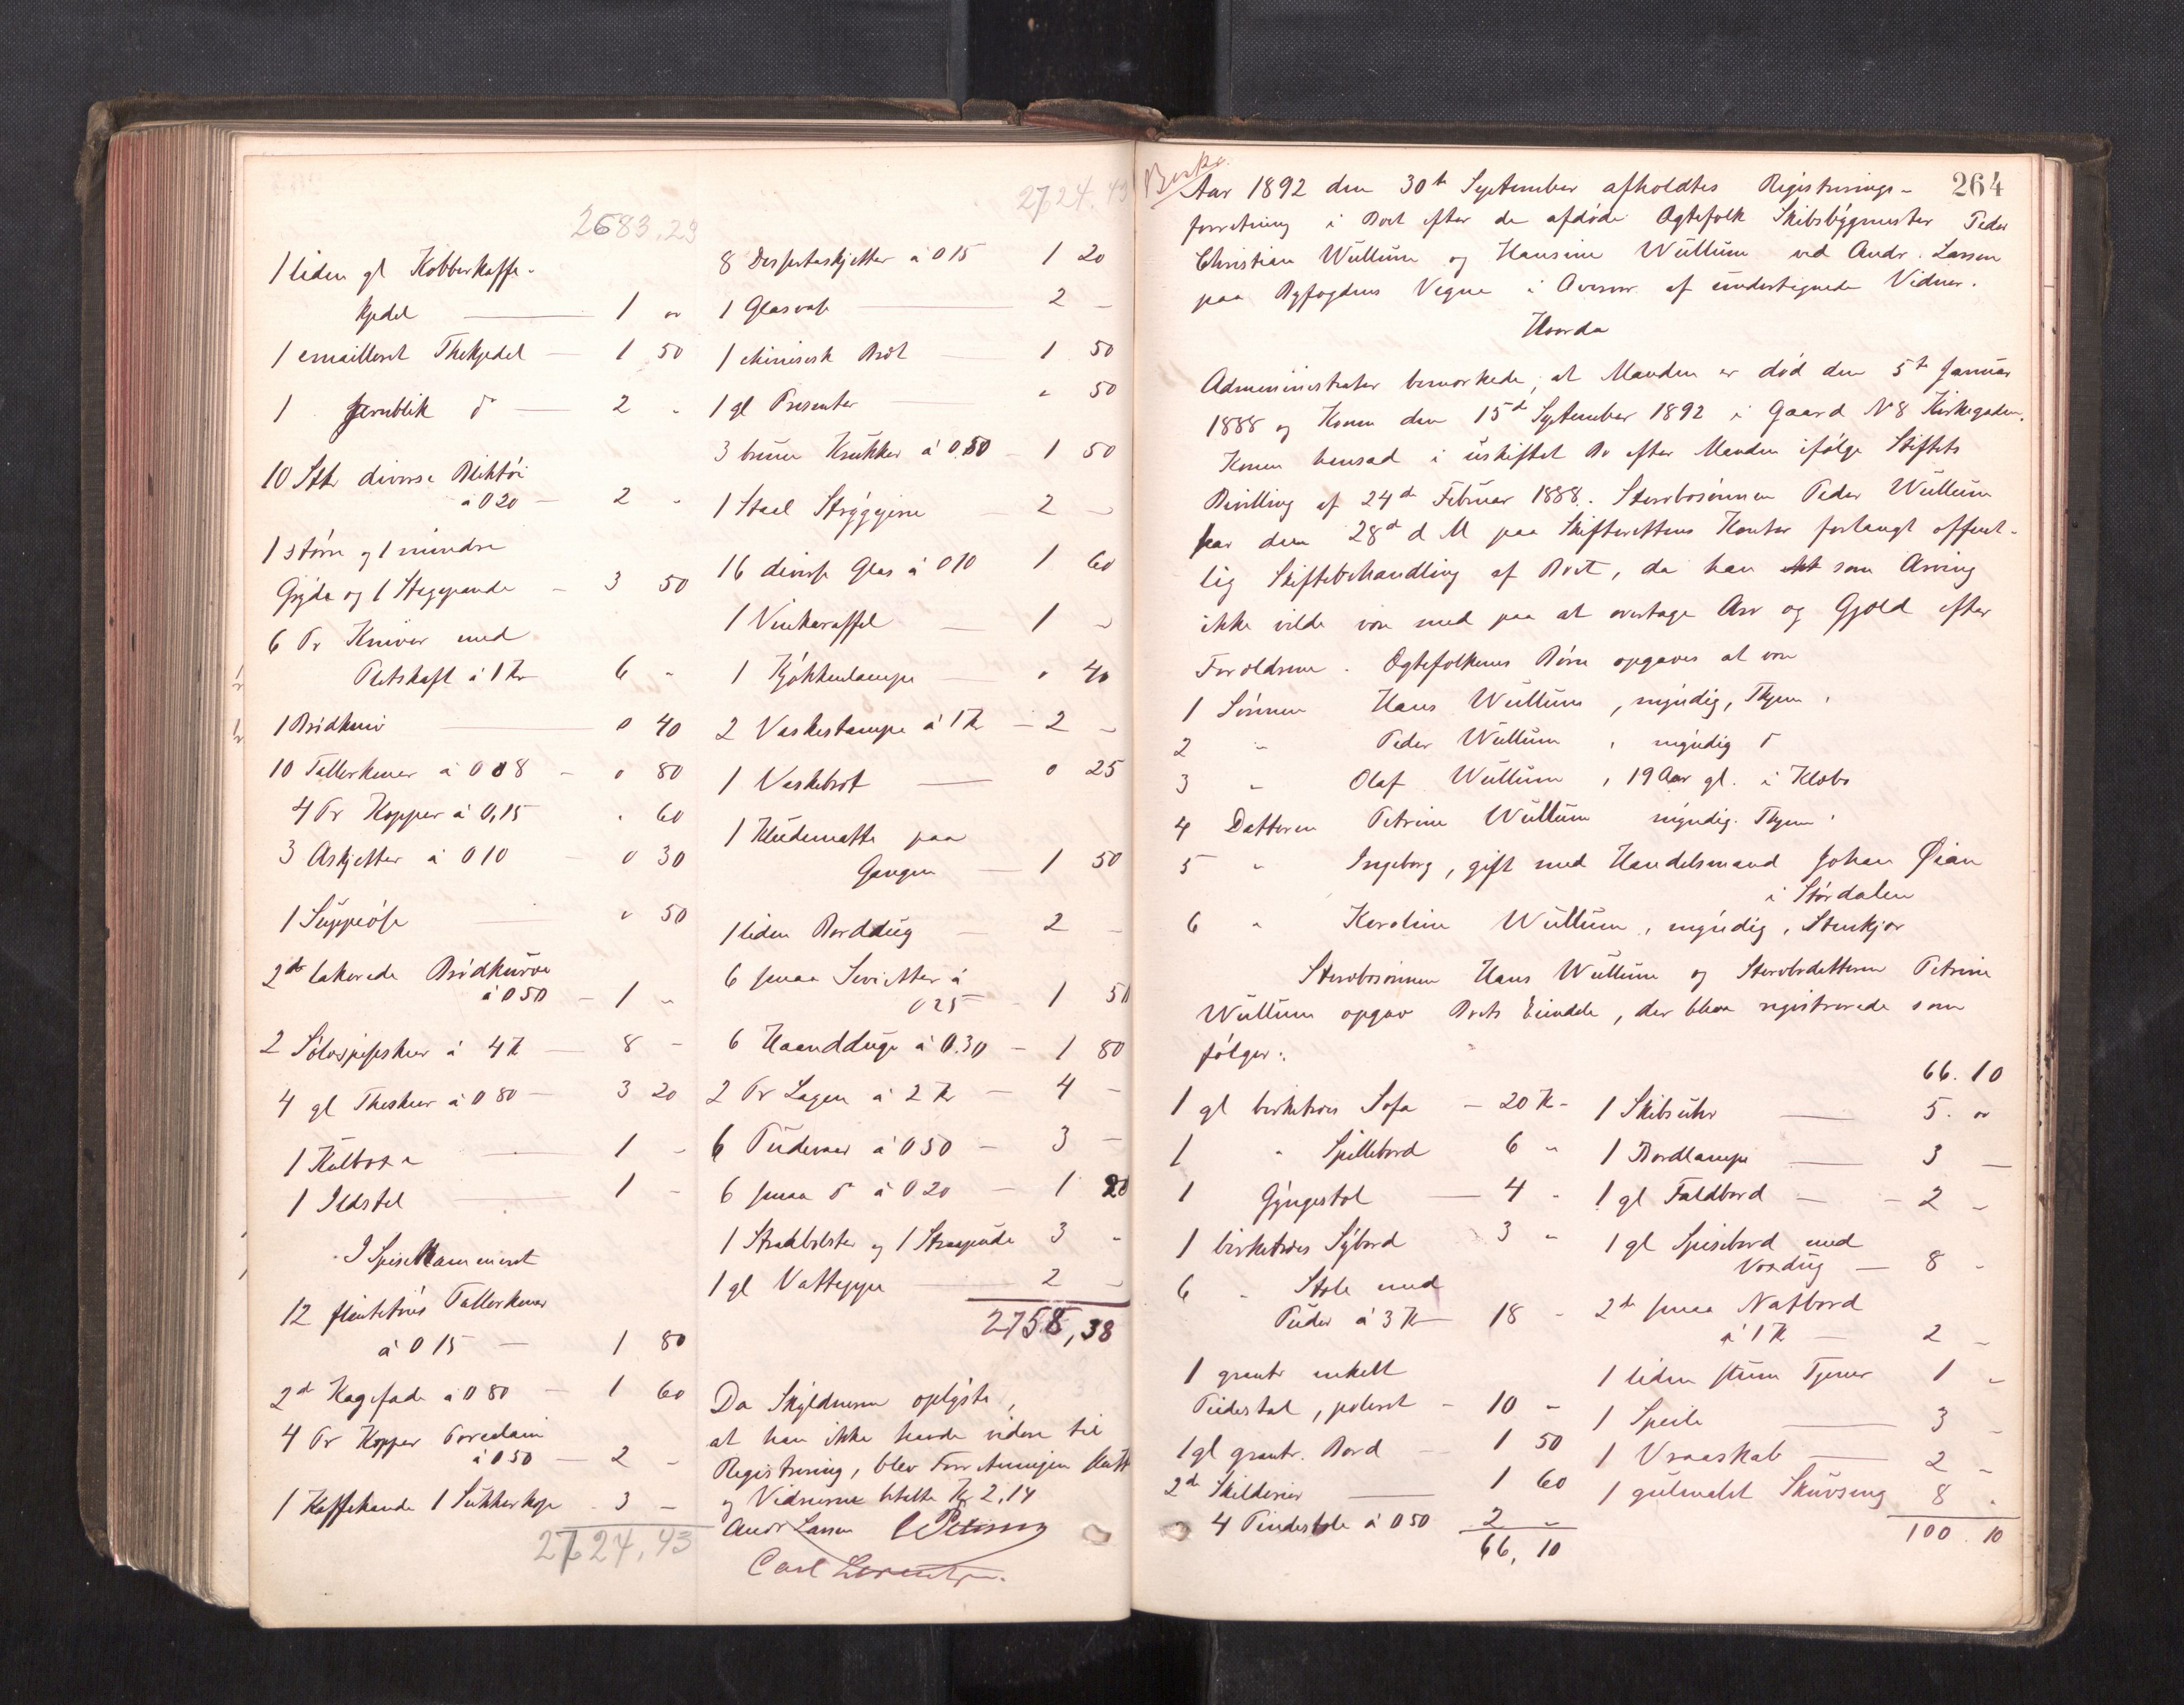 2683.23
1 liden gl Kobberkaffe-
kjedel — 1 "
1 emailleret Thekjedel — 1 50
1 Jernblik do — 2 "
10 Stkr diverse Bliktøi
à 0 20 — 2 "
1 større og 1 mindre
Gryde og 1 Stegepande — 3 50
6 Pr Knive med
Pletskaft à 1 Kr 6 "
1 Brødkniv — " 40
10 Tallerkener à 0 08 — " 80
4 Pr Kopper à 0,15 " 60
3 Asjetter à 0 10 — " 30
1 Suppeøse — " 50
2de lakerede Brødkurve
à 0 50 — 1 "
2 Sølvspiseskeer à 4 Kr — 8 "
4 gl Theskeer à 0 80 — 3 20
1 Kulboxe — 1 "
1 Ildstel — 1 "
I Spisekammeret
12 flintetøis Tallerkener
à 0 15 — 1 80
2de Kagefade à 0 80 — 1 60
4 Pr Kopper Porcelain
à 0 50 — 2 "
1 Kaffekande 1 Sukkerkop 3 "
2724,43
2724.43
8 Dessertaskjetter à 0 15 1 20
1 Glasvase — 2 "
1 chinesisk Bræt — 1 50
1 gl Presenter — " 50
3 brune Krukker à 0.50 — 1 50
1 Staal Strygejern — 2 "
16 diverse Glas à 0 10 1 60
1 Vinkaraffel — 1 "
1 Kjøkkenlampe — " 40
2 Vaskestampe à 1 Kr — 2 "
1 Vaskebræt — " 25
1 Kludematte paa
Gangen — 1 50
1 liden Borddug — 2 "
6 smaa Servietter à
0 25 — 1 50
6 Haandduge à 0.30 — 1 80
2 Pr Lagen à 2 Kr — 4 "
6 Pudevaar à 0 50 — 3 "
6 smaa do à 0 20 — 1 20
1 Straabolster og 1 Straapude 3 "
1 gl Vatteppe — 2 "
2758,38
Da Skyldneren oplyste,
at han ikke havde videre til
Registrering, blev Forretningen sluttet
og Vidnerne betalte Kr 2,14
Andr Larsen
Carl Lorentzen.
264
Beskr.
Aar 1892 den 30te September afholdtes Registrerings-
forretning i Boet efter de afdøde Ægtefolk Skibsbygmester Peder
Christian Wullum og Hansine Wullum ved Andr. Larsen
paa Byfogdens Vegne i Overvær af undertegnede Vidner.
Hvorda
Administrator bemærkede, at Manden er død den 5te Januar
1888 og Konen den 15de September 1892 i Gaard No 8 Kirkegaden.
Konen hensad i uskiftet Bo efter Manden ifølge Stiftets
Bevilling af 24de Februar 1888. Stervbosønnen Peder Wullum
har den 28de d M paa Skifterettens Kontor forlangt offent-
lig Skiftebehandling af Boet, da han som Arving
ikke vilde være med paa at overtage Arv og Gjæld efter
Forældrene. Ægtefolkenes Børn opgaves at være
1 Sønnen Hans Wullum, myndig, Thjem.
2 " Peder Wullum, myndig do
3 " Olaf Wullum, 19 Aar gl. i Klæbo
4 Datteren Petrine Wullum myndig. Thjem.
5 " Ingeborg, gift med Handelsmand Johan Øian
i Størdalen
6 " Karoline Wullum, myndig, Stenkjær
Stervbosønnen Hans Wullum og Stervbodatteren Petrine
Wullum opgav Boets Eiendele, der blev registrerede som
følger:
1 gl birketræes Sofa — 20 Kr "
1 " Spillebord 6 "
1 Gyngestol — 4 "
1 birketræes Sybord 3 "
6 " Stole med
Puder à 3 Kr 18 "
1 grantr enkelt
Pindestol, poleret — 10 "
1 gl grantr. Bord — 1 50
2de Skilderier — 1 60
4 Pindestole à 0 50 2 "
66,10
66.10
1 Skibsuhr — 5. "
1 Bordlampe — 3 —
1 gl Faldbord — 2 "
1 gl Spisebord med
Voxdug — 8 "
2de smaa Natbord
à 1 Kr — 2 "
1 liden stum Tjener 1 "
1 Speile — 3 "
1 Vraaskab — 2 "
1 gulmalet Skuvseng 8 "
100.10